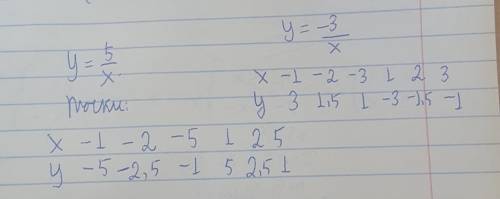 y = -3/x
y = 5/x
x -1 -2 -3 1 2 3
точки: y 3 1,5 1 -3 -1,5 -1
x -1 -2 -5 1 2 5
y -5 -2,5 -1 5 2,5 1